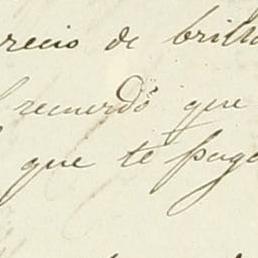 recio de brill
recuerdo que
que te pago